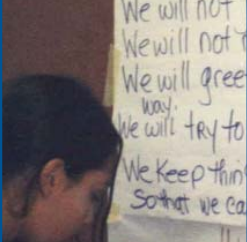 We will not
We will not
We will gree
way.
We will try to
We Keep thin
So that we ca